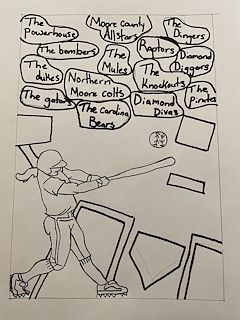 The
Powerhouse
Moore County
Allstars
The
Dingers
The bombers
The
Mules
Raptors
Diamond
Diggers
The
dukes
Northern
Moore colts
The
Knockouts
The
Pirates
The gators
The Carolina
Bears
Diamond
Divas